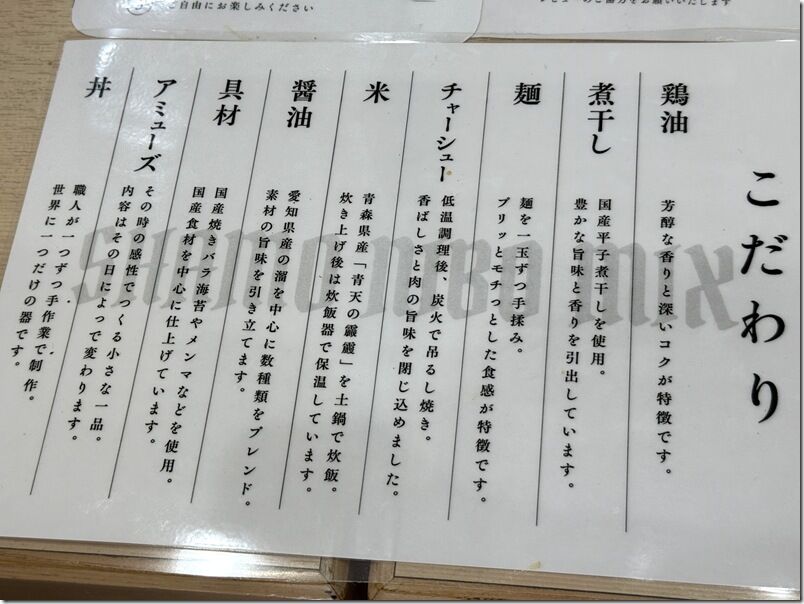 ご自由にお楽しみください
レビューのご協力をお願いいたします
こだわり
鶏油
芳醇な香りと深いコクが特徴です。
煮干し
国産平子煮干しを使用。
豊かな旨味と香りを引出しています。
麺
麺を一玉ずつ手揉み。
プリッとモチっとした食感が特徴です。
チャーシュー
低温調理後、炭火で吊るし焼き。
香ばしさと肉の旨味を閉じ込めました。
米
青森県産「青天の霹靂」を土鍋で炊飯。
炊き上げ後は炊飯器で保温しています。
醤油
愛知県産の溜を中心に数種類をブレンド。
素材の旨味を引き立てます。
具材
国産焼きバラ海苔やメンマなどを使用。
国産食材を中心に仕上げています。
アミューズ
その時の感性でつくる小さな一品。
内容はその日によって変わります。
丼
職人が一つずつ手作業で制作。
世界に一つだけの器です。
SHAMOMBO MIX